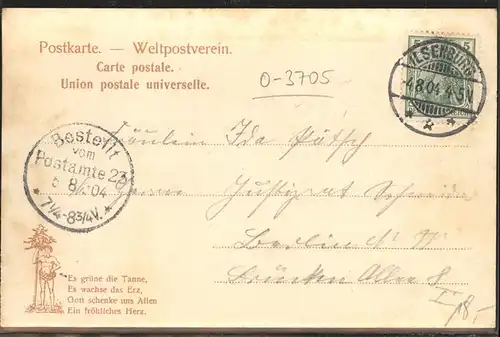 Postkarte. — Weltpostverein.
Carte postale.
Union postale universelle.
O-3705
5 5
ILSENBURG
4.8.04. 4-5N
Bestellt
vom
Postamte 23
5 8/8 04
7¼-8¾V.
Fräulein Ida
Justizrat
Berlin N. W
Allee 8
I
Es grüne die Tanne,
Es wachse das Erz,
Gott schenke uns Allen
Ein fröhliches Herz.